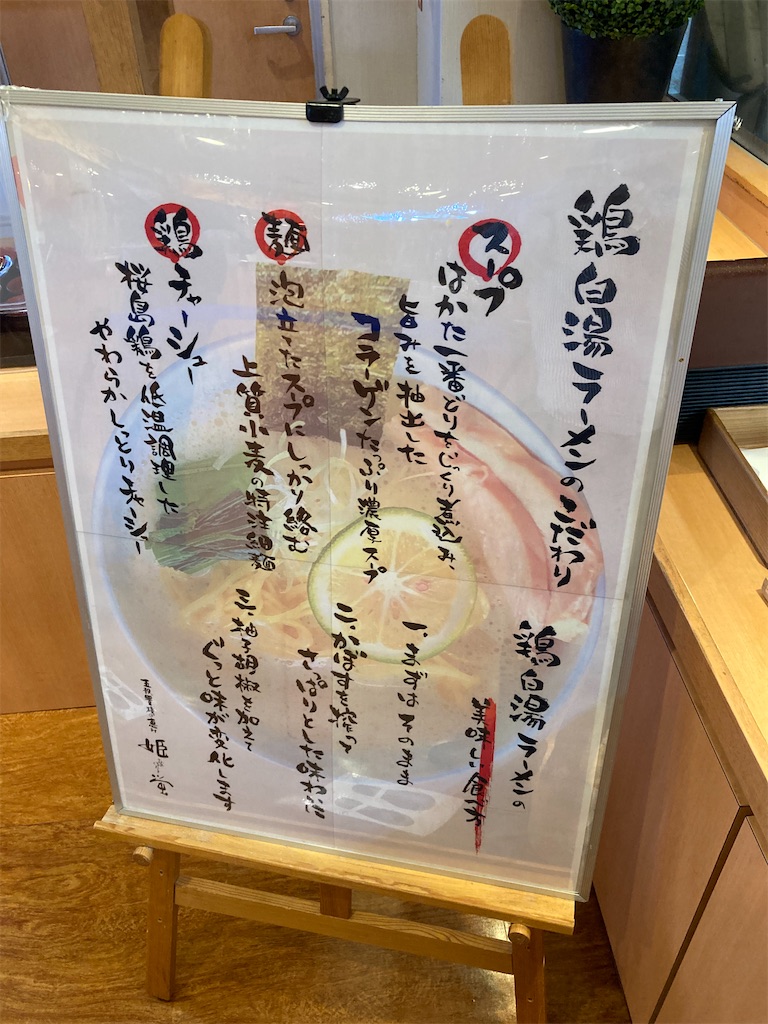 鶏白湯ラーメンのこだわり
スープ
はかた一番どりをじっくり煮込み、
旨みを抽出した
コラーゲンたっぷり濃厚スープ
麺
泡立ったスープにしっかり絡む
上質小麦の特注細麺
鶏チャーシュー
桜島鶏を低温調理した
やわらかしっとりチャーシュー
鶏白湯ラーメンの
美味しい食べ方
一、まずはそのまま
二、かぼすを搾って
さっぱりとした味わいに
三、柚子胡椒を加えて
ぐっと味が変化します